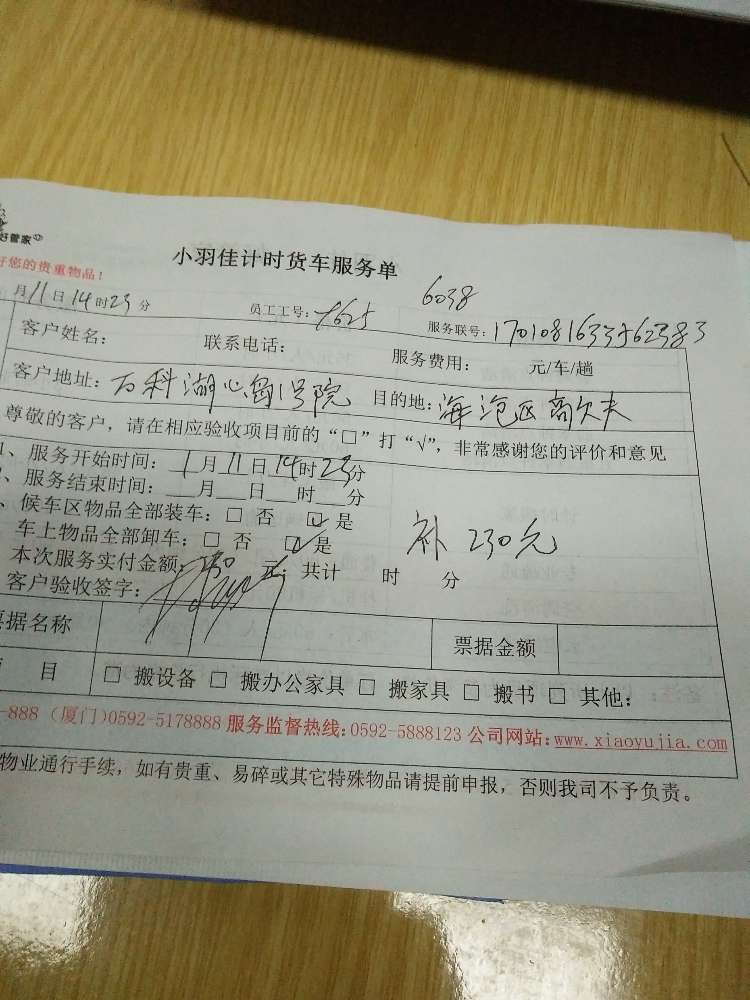 好管家
小羽佳计时货车服务单
好您的贵重物品！
6038
月11日14时23分 员工工号：7625 服务联号：1701081633562383
客户姓名： 联系电话： 服务费用： 元/车/趟
客户地址：万科湖心岛1号院 目的地：海沧区高尔夫
尊敬的客户，请在相应验收项目前的“□”打“√”，非常感谢您的评价和意见
1、服务开始时间：1月11日14时23分
、服务结束时间：__月__日__时__分
、候车区物品全部装车：□ 否 ☑ 是
车上物品全部卸车：□ 否 ☑ 是 补 230元
本次服务实付金额： 元；共计 时 分
客户验收签字：
票据名称 票据金额
项 目 □ 搬设备 □ 搬办公家具 □ 搬家具 □ 搬书 □ 其他：
-888（厦门)0592-5178888 服务监督热线：0592-5888123 公司网站：www.xiaoyujia.com
物业通行手续，如有贵重、易碎或其它特殊物品请提前申报，否则我司不予负责。